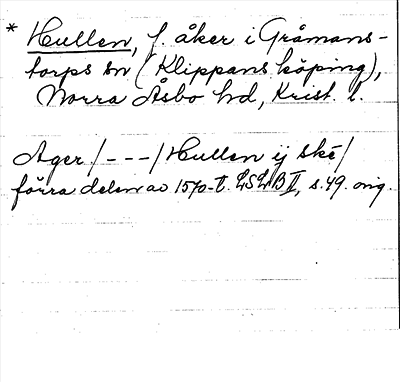 * Hullen, f. åker i Gråmans-
torps sn (Klippans köping),
Norra Åsbo hd, Krist. l.
Ager /---/ Hullen ij ske /
förra delen av 1570-t. LSLB II, s. 49. orig.